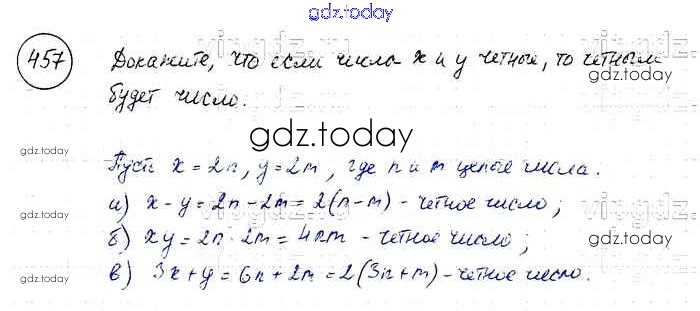 gdz.today
457 Докажите, что если числа x и y четные, то четным
gdz.today
будет число.
gdz.today
gdz.today
gdz.today
Пусть x = 2n, y = 2m, где n и m целые числа.
а) x - y = 2n - 2m = 2(n-m) - четное число;
gdz.today
б) xy = 2n · 2m = 4nm - четное число;
gdz.today
в) 3x + y = 6n + 2m = 2(3n+m) - четное число.
gdz.today